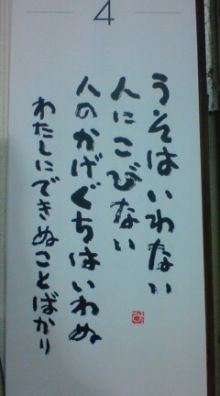 4
うそはいわない
人にこびない
人のかげぐちはいわぬ
わたしにできぬことばかり